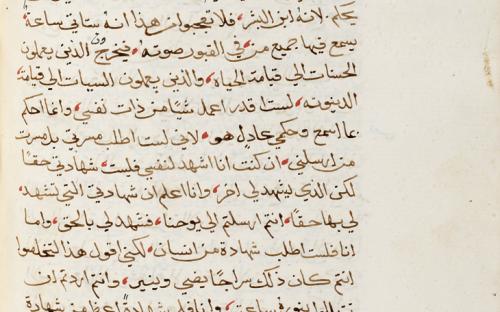 يحكم، لانه ابن البشر، فلا تعجبوا من هذا انه ستاتي ساعة
يسمع فيها جميع من في القبور صوته، فيخرجون الذين يعملون
الحسنات الي قيامة الحياه، والذين يعملون السيات الي قيامة
الدينونه، لست اقدر اعمل شيًا من ذات نفسي، وانما احكم
بما اسمع وحكمي عادل هو، لاني لست اطلب مسرتي بل مسرت
من ارسلني، ان كنت انا اشهد لنفسي فليست شهادتي حقًا
لكن الذي يشهد لي اخر، وانا اعلم ان شهادتي التي تشهد
لي بها حقًا، انتم ارسلتم الي يوحنا، فشهد لي بالحق، واما
انا فلست اطلب شهادة من انسان، لكني اقول هذا لتخلصوا
انتم كان ذلك سراجًا يضي وينير، وانتم اردتم ان
بنوره ساعة، وانا فلي شهادةً اعظم من شهادة